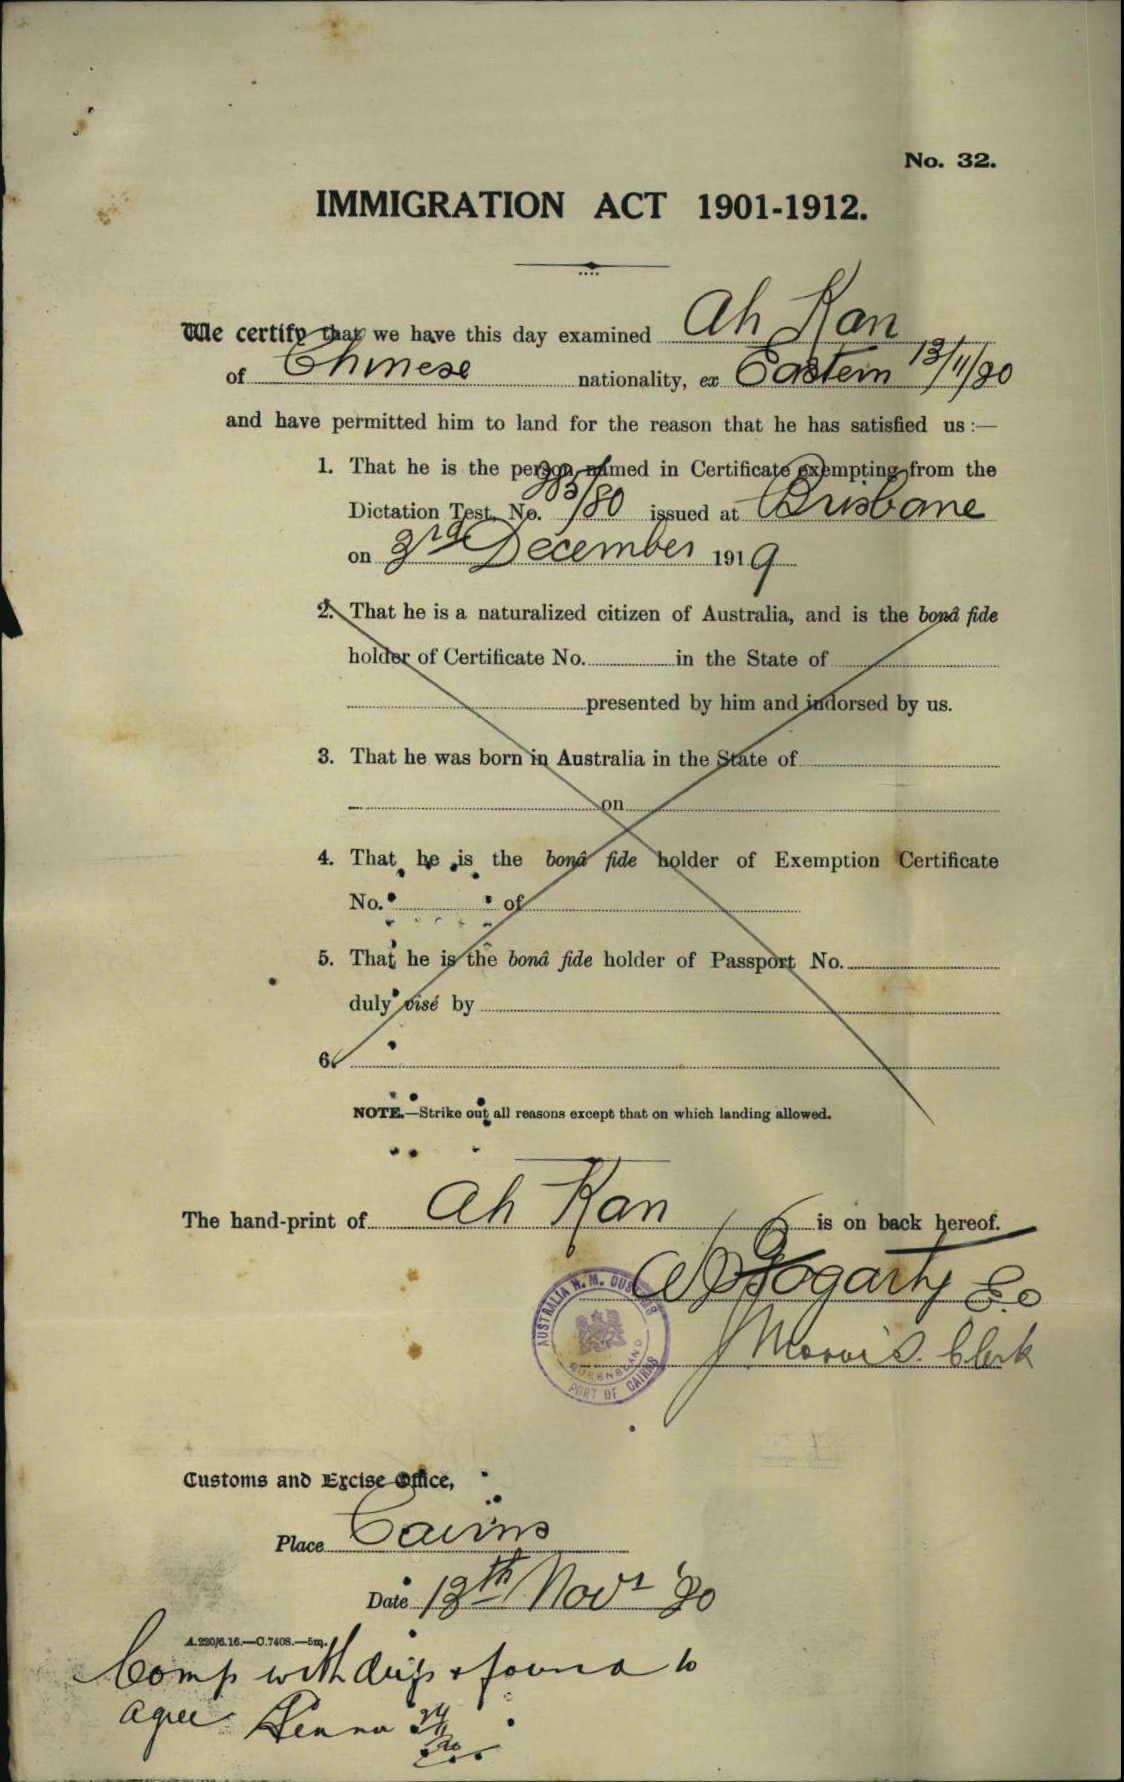 No. 32.
IMMIGRATION ACT 1901-1912.
We certify that we have this day examined Ah Kan
of Chinese nationality, ex Eastern 13/11/20
and have permitted him to land for the reason that he has satisfied us :—
1. That he is the person named in Certificate exempting from the
Dictation Test, No. 285/80 issued at Brisbane
on 3rd December 1919
2. That he is a naturalized citizen of Australia, and is the bonâ fide
holder of Certificate No. in the State of
presented by him and indorsed by us.
3. That he was born in Australia in the State of
on
4. That he is the bonâ fide holder of Exemption Certificate
No. of
5. That he is the bonâ fide holder of Passport No.
duly visé by
6.
NOTE.—Strike out all reasons except that on which landing allowed.
The hand-print of Ah Kan is on back hereof.
Fogarty E.O
J Morris. Clerk
AUSTRALIA H. M. CUSTOMS
QUEENSLAND
PORT OF CAIRNS
Customs and Excise Office,
Place Cairns
Date 13th Novr '20
A.220/6.16.—C.7408.—5m.
Comp with dup & found to
agree